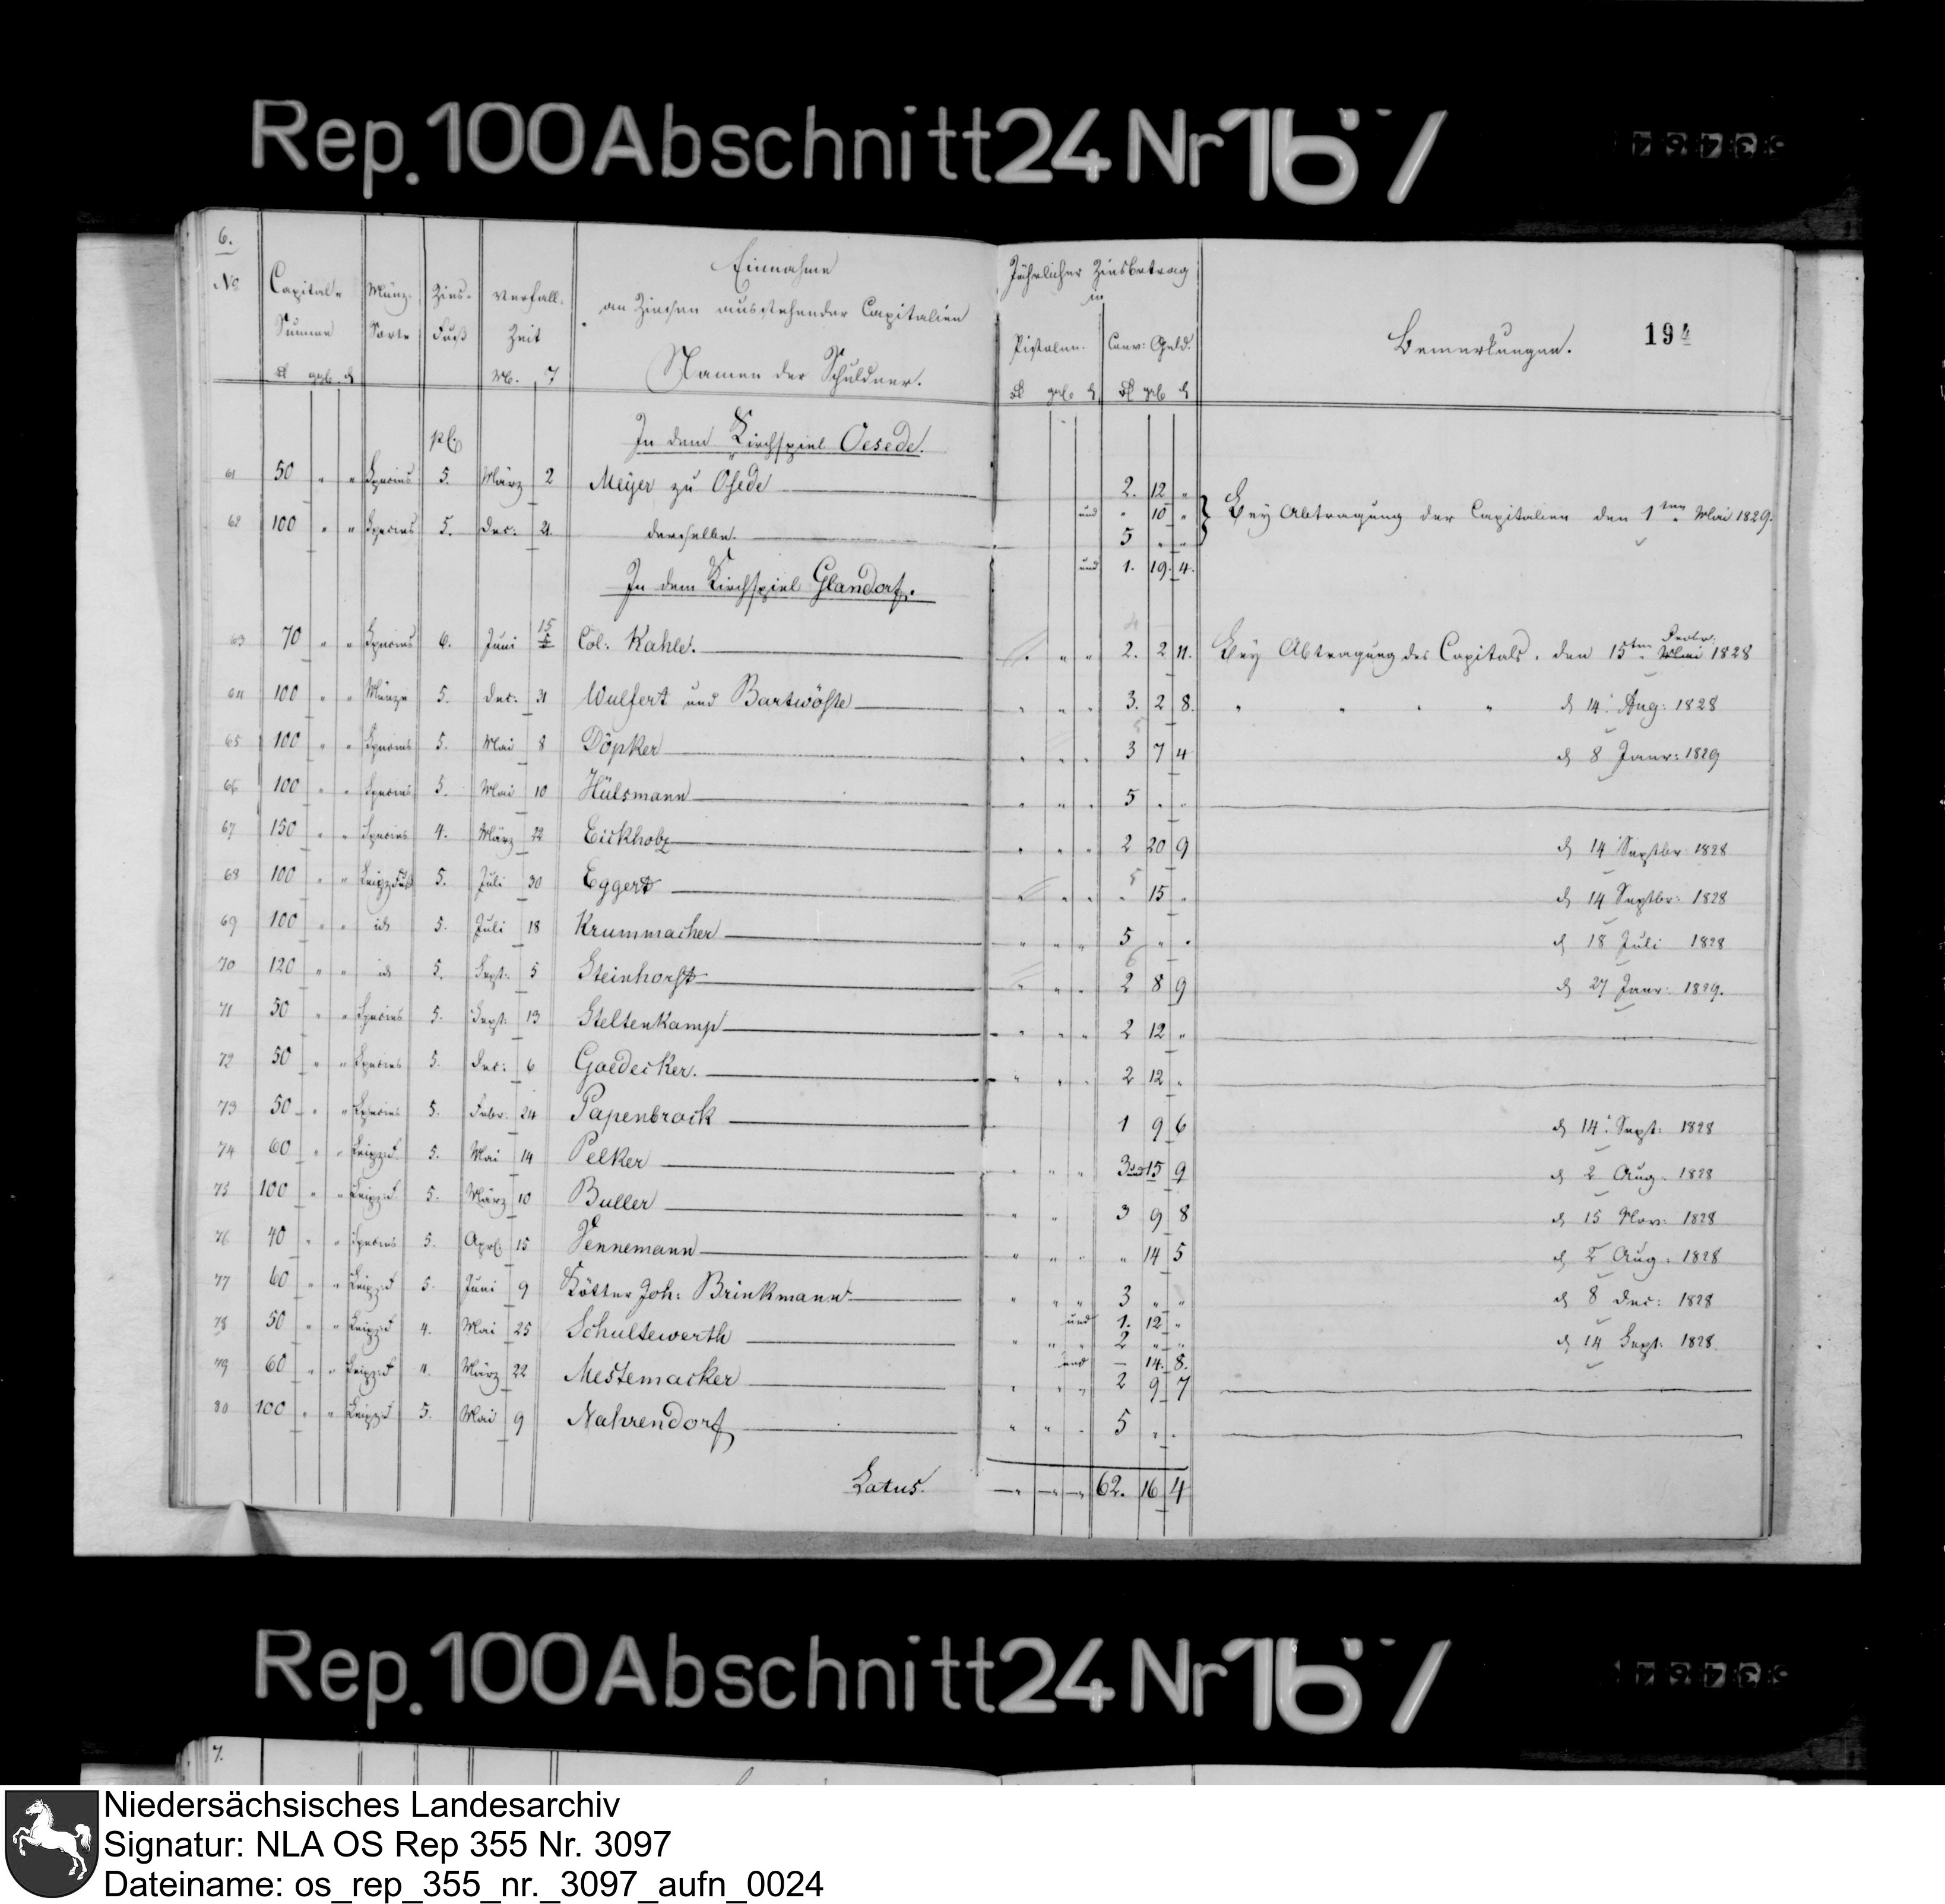 Rep. 100 Abschnitt 24 Nr 167
6.
194
No Capital- Summen Münz- Sorte Zins- Fuß Verfall- Zeit
Einnahme
an Zinsen ausstehender Capitalien
Namen der Schuldner.
Jährlicher Zinsbetrag
in
Pistolen. Conv: Geld.
Bemerkungen.
In dem Kirchspiel Oesede.
61 50 " " Species 5. März 2 Meyer zu Ohsede 2. 12 "
und " 10 " Bey Abtragung der Capitalien den 1ten Mai 1829.
62 100 " " Species 5. Dec: 21. derselbe. 5 " "
und 1. 19. 4.
In dem Kirchspiel Glandorf.
63 70 " " Species 6. Juni 15 Col: Kahle. " " " 2. 2 11. Bey Abtragung des Capitals, den 15ten 1828
64 100 " " Münze 5. Dec: 31 Wulfert und Bartwöste " " " 3. 2 8. " " " " d 14 Aug: 1828
65 100 " " Species 5. Mai 8 Döpker " " " 3 7 4 d 8 Janr: 1829
66 100 " " Species 5. Mai 10 Hülsmann " " " 5 " "
67 150 " " Species 4. März 22 Eickholz " " " 2 20 9 d 14 Septbr 1828
68 100 " " Leipz. Fuß 5. Juli 30 Eggert " " " " 15 " d 14 Septbr: 1828
69 100 " " id 5. Juli 18 Krummacher " " " 5 " " d 18 Juli 1828
70 120 " " id 5. Sept: 5 Steinhorst " " " 2 8 9 d 27 Janr: 1829.
71 50 " " Species 5. Sept: 13 Steltenkamp " " " 2 12 "
72 50 " " Species 5. Dec: 6 Goedecker. " " " 2 12 "
73 50 " " Species 5. Febr. 24 Papenbrock 1 9 6 d 14 Sept: 1828
74 60 " " Leipz. F 5. Mai 14 Pelker " " " 3 und 15 9 d 2 Aug. 1828
75 100 " " Leipz. F 5. März 10 Buller " " 3 9 8 d 15 Nov: 1828
76 40 " " Species 5. Apr. 15 Vennemann " " " " 14 5 d 2 Aug. 1828
77 60 " " Leipz. F 5. Juni 9 Kötter Joh: Brinkmann " " " 3 " " d 8 Dec: 1828
und 1. 12 "
78 50 " " Leipz. F 4. Mai 25 Schultewerth " " " 2 " " d 14 Sept: 1828.
und — 14. 8.
79 60 " " Leipz. F 4. März 22 Mestemacker " " " 2 9 7
80 100 " " Leipz. F 5. Mai 9 Nahrendorf " " " 5 " "
Latus. 62. 16 4
Rep. 100 Abschnitt 24 Nr 167
7.
Niedersächsisches Landesarchiv
Signatur: NLA OS Rep 355 Nr. 3097
Dateiname: os_rep_355_nr._3097_aufn_0024